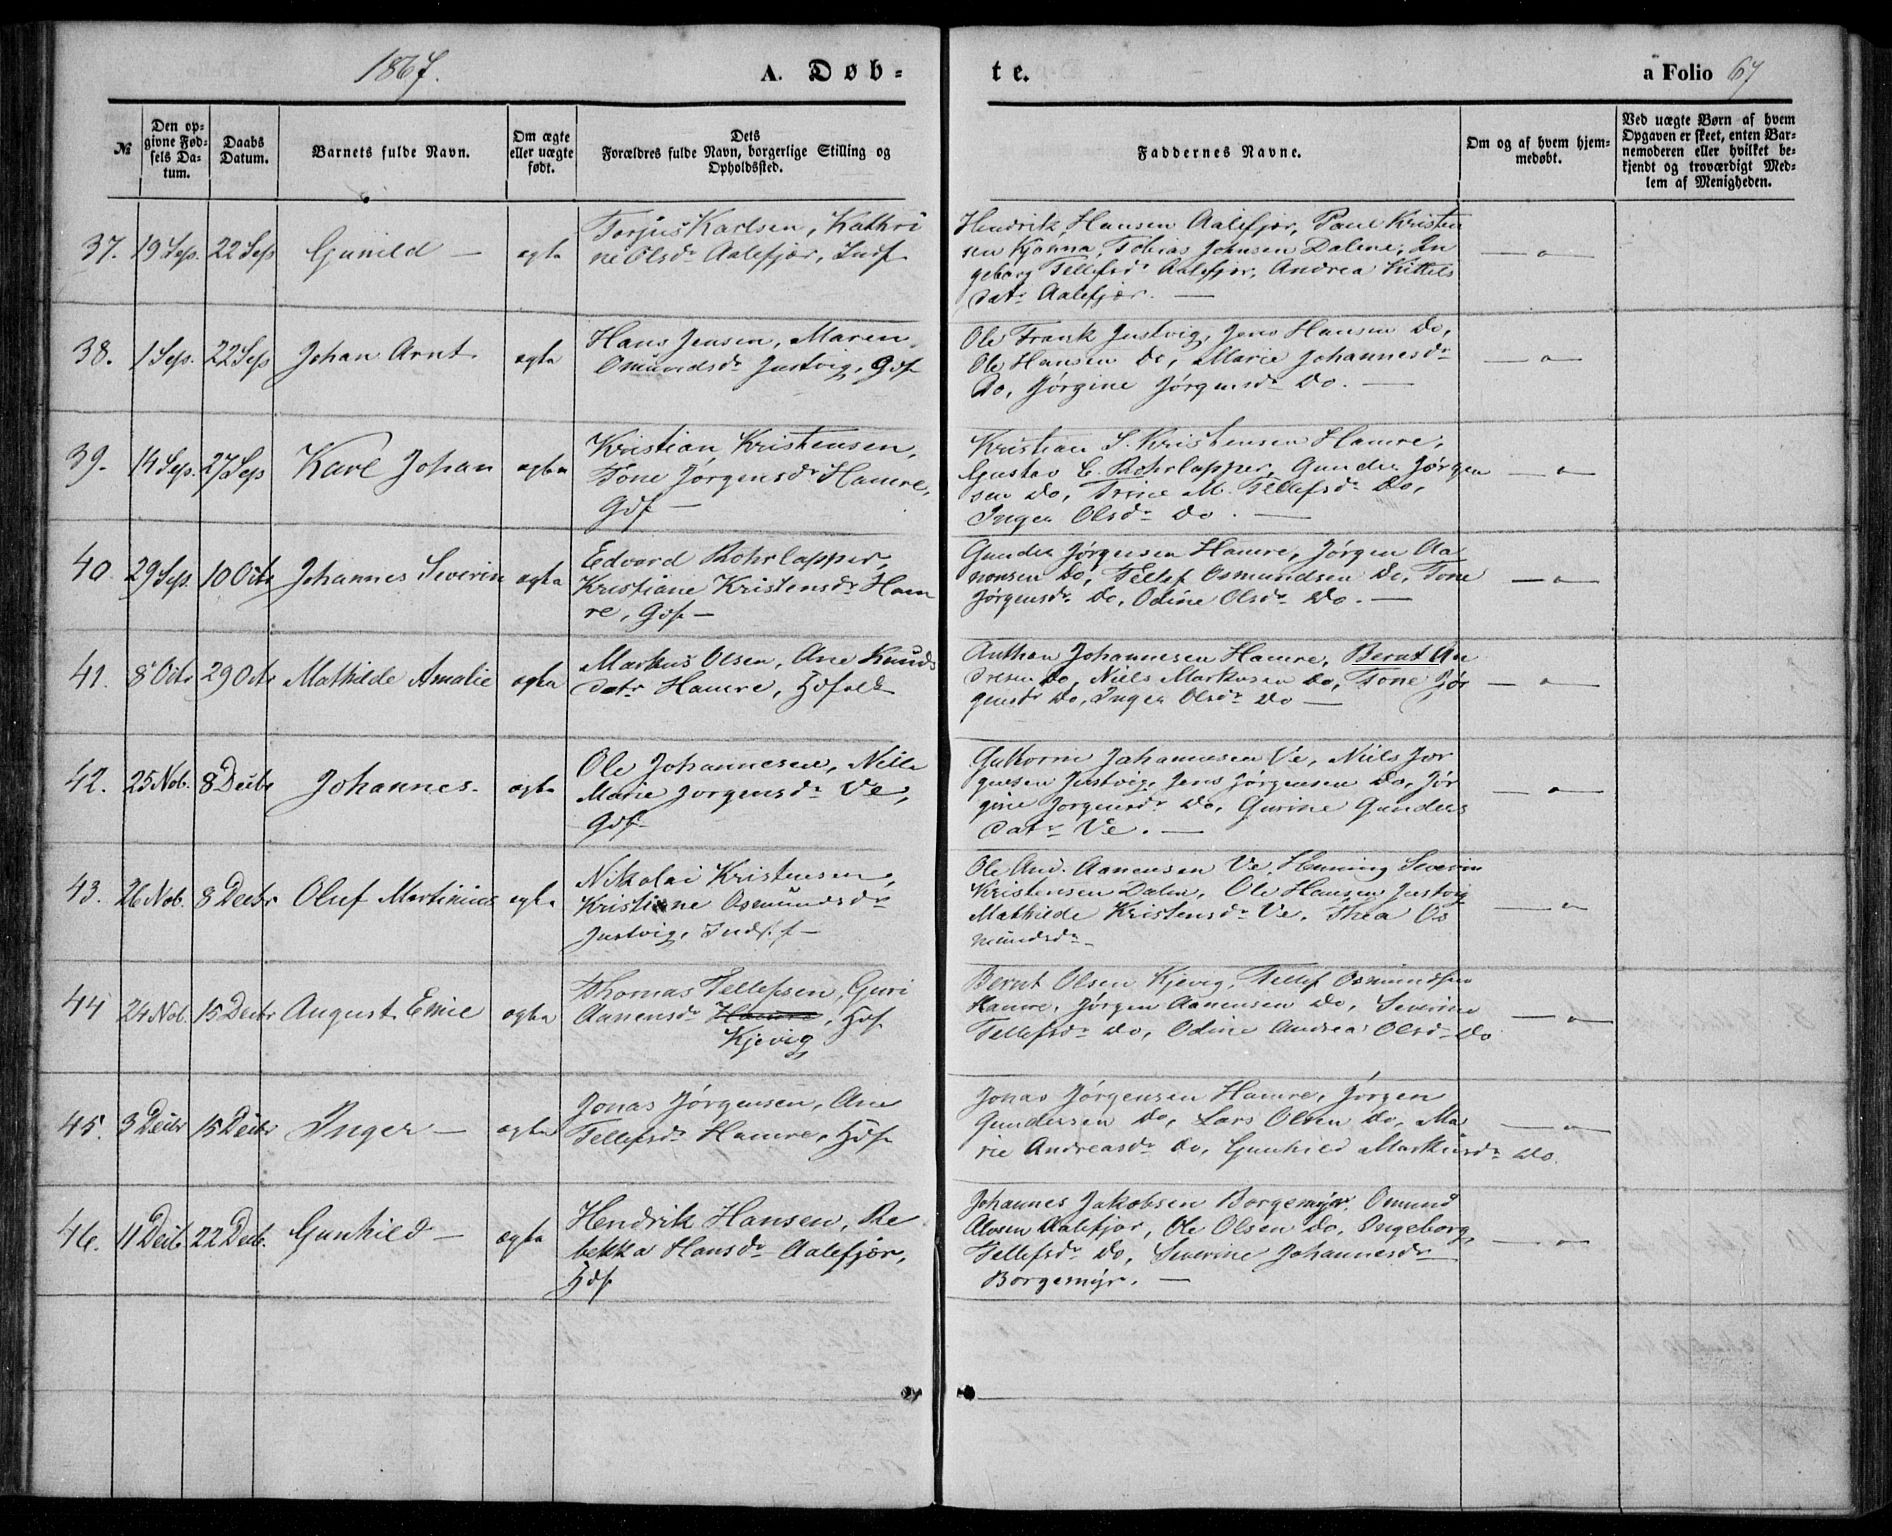 1867.
A. Døb-
te.
a Folio 67
№
Den op-
givne Fød-
sels Da-
tum.
Daabs
Datum.
Barnets fulde Navn.
Om ægte
eller uægte
født.
Dets
Forældres fulde Navn, borgerlige Stilling og
Opholdssted.
Faddernes Navne.
Om og af hvem hjem-
medøbt.
Ved uægte Børn af hvem
Opgaven er skeet, enten Bar-
nemoderen eller hvilket be-
kjendt og troværdigt Med-
lem af Menigheden.
37. 19 Sep. 22 Sep Gunild — ægta
Torjus Karlsen, Kathri
ne Olsdr Aalefjær, Indf
Hendrik Hansen Aalefjær, Paul Kristen
sen Kjønna, Tobias Johnsen Dalene, In
geborg Tellefsdr Aalefjær, Andrea Kittels
datr Aalefjær. —
— o —
38. 1 Sep. 22 Sep Johan Arnt ægta
Hans Jensen, Maren
Omundsdr Justvig, Gdf
Ole Frank Justvig, Jens Hansen Do,
Ole Hansen Do, Marie Johannesdr
Do, Jørgine Jørgensdr Do. —
— o —
39. 14 Sep. 27 Sep Karl Johan ægta
Kristian Kristensen,
Tone Jørgensdr Hamre,
Gdf —
Kristian S. Kristensen Hamre,
Gustav E. Rohrlapper, Gunder Jørgen
sen Do, Trine M. Tellefsdr Do,
Inger Olsdr Do. —
— o —
40. 29 Sep. 10 Octr Johannes Severin ægta
Edvard Rohrlapper,
Kristiane Kristensdr Ham
re, Gdf —
Gunder Jørgensen Hamre, Jørgen Aa
nonsen Do, Tellef Osmundsen Do, Tone
Jørgensdr Do, Odine Olsdr Do. —
— o —
41. 8 Octr 29 Octr Mathilde Amalie ægta
Markus Olsen, Ane Knuds
datr Hamre, Hdfolk
Anthon Johannesen Hamre, Bernt An
dresen Do, Niels Markusen Do, Tone Jør
gensdr Do, Inger Olsdr Do —
— o —
42. 25 Nob. 8 Decbr Johannes. ægta
Ole Johannesen, Nille
Marie Jørgensdr Ve,
Gdf
Guttorm Johannesen Ve, Niels Jør
gensen Justvig, Jens Jørgensen Do, Jør
gine Jørgensdr Do, Gurine Gunders
datr Ve. —
— o —
43. 26 Nob. 8 Decbr Oluf Martinius ægta
Nikolai Kristensen,
Kristiane Osmundsdr
Justvig, Indf. f —
Ole And. Aanensen Ve, Henning Severin
Kristensen Dalen, Ole Hansen Justvig
Mathilde Kristensdr Ve, Thea Os
mundsdr —
— o —
44 24 Nob. 15 Decbr August Emil ægta
Thomas Tellefsen, Guri
Aanensdr Hamre, Hdf
Kjevig
Bernt Olsen Kjevig, Tellef Osmundsen
Hamre, Jørgen Aanensen Do, Severine
Tellefsdr Do, Odine Andrea Olsd Do
— o —
45. 3 Decbr 15 Decbr Inger — ægta
Jonas Jørgensen, Ane
Tellefsdr Hamre, Hdf
Jonas Jørgensen Hamre, Jørgen
Gundersen Do, Lars Olsen Do, Ma
rie Andreasdr Do, Gunhild Markusdr Do
— o —
46. 11 Decb 22 Decb. Gunhild — ægta
Hendrik Hansen, Re
bekka Hansdr Aalefjær,
Hdf
Johannes Jakobsen Borgemyr, Omund
Alosen Aalefjær, Ole Olsen Do, Ingeborg
Tellefsdr Do, Severine Johannesdr
Borgemyr. —
— o —